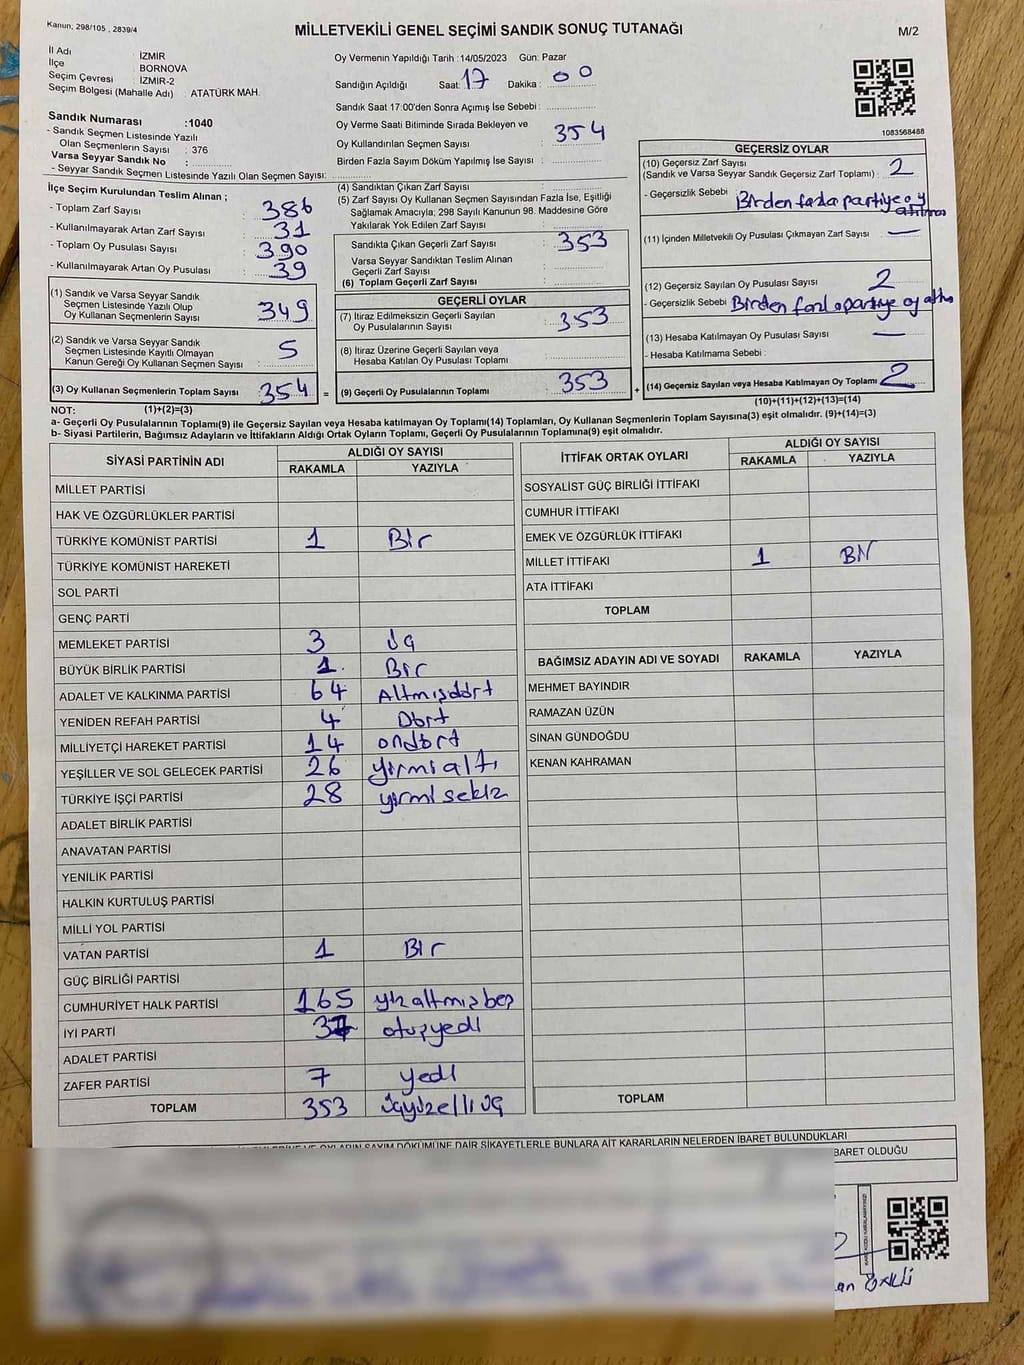 Kanun; 298/105 , 2839/4
MİLLETVEKİLİ GENEL SEÇİMİ SANDIK SONUÇ TUTANAĞI
M/2
İl Adı : İZMİR
İlçe : BORNOVA
Seçim Çevresi : İZMİR-2
Seçim Bölgesi (Mahalle Adı) : ATATÜRK MAH.
Sandık Numarası :1040
- Sandık Seçmen Listesinde Yazılı
Olan Seçmenlerin Sayısı : 376
Varsa Seyyar Sandık No :
- Seyyar Sandık Seçmen Listesinde Yazılı Olan Seçmen Sayısı:
Oy Vermenin Yapıldığı Tarih :14/05/2023 Gün: Pazar
Sandığın Açıldığı Saat: 17 Dakika : 00
Sandık Saat 17:00'den Sonra Açımış İse Sebebi :
Oy Verme Saati Bitiminde Sırada Bekleyen ve
Oy Kullandırılan Seçmen Sayısı : 354
Birden Fazla Sayım Döküm Yapılmış İse Sayısı :
1083568488
İlçe Seçim Kurulundan Teslim Alınan ;
- Toplam Zarf Sayısı : 386
- Kullanılmayarak Artan Zarf Sayısı : 31
- Toplam Oy Pusulası Sayısı : 390
- Kullanılmayarak Artan Oy Pusulası : 39
(1) Sandık ve Varsa Seyyar Sandık
Seçmen Listesinde Yazılı Olup
Oy Kullanan Seçmenlerin Sayısı : 349
(2) Sandık ve Varsa Seyyar Sandık
Seçmen Listesinde Kayıtlı Olmayan
Kanun Gereği Oy Kullanan Seçmen Sayısı : 5
(3) Oy Kullanan Seçmenlerin Toplam Sayısı : 354 =
(1)+(2)=(3)
(4) Sandıktan Çıkan Zarf Sayısı :
(5) Zarf Sayısı Oy Kullanan Seçmen Sayısından Fazla İse, Eşitliği
Sağlamak Amacıyla; 298 Sayılı Kanunun 98. Maddesine Göre
Yakılarak Yok Edilen Zarf Sayısı :
Sandıkta Çıkan Geçerli Zarf Sayısı : 353
Varsa Seyyar Sandıktan Teslim Alınan
Geçerli Zarf Sayısı :
(6) Toplam Geçerli Zarf Sayısı :
GEÇERLİ OYLAR
(7) İtiraz Edilmeksizin Geçerli Sayılan
Oy Pusulalarının Sayısı : 353
(8) İtiraz Üzerine Geçerli Sayılan veya
Hesaba Katılan Oy Pusulası Toplamı :
(9) Geçerli Oy Pusulalarının Toplamı : 353 +
GEÇERSİZ OYLAR
(10) Geçersiz Zarf Sayısı
(Sandık ve Varsa Seyyar Sandık Geçersiz Zarf Toplamı) : 2
- Geçersizlik Sebebi : Birden fazla partiye oy
(11) İçinden Milletvekili Oy Pusulası Çıkmayan Zarf Sayısı : —
(12) Geçersiz Sayılan Oy Pusulası Sayısı : 2
- Geçersizlik Sebebi : partiye oy
(13) Hesaba Katılmayan Oy Pusulası Sayısı : —
- Hesaba Katılmama Sebebi :
(14) Geçersiz Sayılan veya Hesaba Katılmayan Oy Toplamı : 2
(10)+(11)+(12)+(13)=(14)
NOT:
a- Geçerli Oy Pusulalarının Toplamı(9) ile Geçersiz Sayılan veya Hesaba katılmayan Oy Toplamı(14) Toplamları, Oy Kullanan Seçmenlerin Toplam Sayısına(3) eşit olmalıdır. (9)+(14)=(3)
b- Siyasi Partilerin, Bağımsız Adayların ve İttifakların Aldığı Ortak Oyların Toplamı, Geçerli Oy Pusulalarının Toplamına(9) eşit olmalıdır.
SİYASİ PARTİNİN ADI ALDIĞI OY SAYISI
RAKAMLA YAZIYLA
MİLLET PARTİSİ
HAK VE ÖZGÜRLÜKLER PARTİSİ
TÜRKİYE KOMÜNİST PARTİSİ 1 Bir
TÜRKİYE KOMÜNİST HAREKETİ
SOL PARTİ
GENÇ PARTİ
MEMLEKET PARTİSİ 3 üç
BÜYÜK BİRLİK PARTİSİ 1 Bir
ADALET VE KALKINMA PARTİSİ 64 Altmışdört
YENİDEN REFAH PARTİSİ 4 Dört
MİLLİYETÇİ HAREKET PARTİSİ 14 ondört
YEŞİLLER VE SOL GELECEK PARTİSİ 26 yirmialtı
TÜRKİYE İŞÇİ PARTİSİ 28 yirmisekiz
ADALET BİRLİK PARTİSİ
ANAVATAN PARTİSİ
YENİLİK PARTİSİ
HALKIN KURTULUŞ PARTİSİ
MİLLİ YOL PARTİSİ
VATAN PARTİSİ 1 Bir
GÜÇ BİRLİĞİ PARTİSİ
CUMHURİYET HALK PARTİSİ 165 yüzaltmışbeş
İYİ PARTİ 37 otuzyedi
ADALET PARTİSİ
ZAFER PARTİSİ 7 yedi
TOPLAM 353 üçyüzelliüç
İTTİFAK ORTAK OYLARI ALDIĞI OY SAYISI
RAKAMLA YAZIYLA
SOSYALİST GÜÇ BİRLİĞİ İTTİFAKI
CUMHUR İTTİFAKI
EMEK VE ÖZGÜRLÜK İTTİFAKI
MİLLET İTTİFAKI 1 Bir
ATA İTTİFAKI
TOPLAM
BAĞIMSIZ ADAYIN ADI VE SOYADI RAKAMLA YAZIYLA
MEHMET BAYINDIR
RAMAZAN ÜZÜN
SİNAN GÜNDOĞDU
KENAN KAHRAMAN
TOPLAM
OYLARIN SAYIM DÖKÜMÜNE DAİR ŞİKAYETLERLE BUNLARA AİT KARARLARIN NELERDEN İBARET BULUNDUKLARI
BARET OLDUĞU